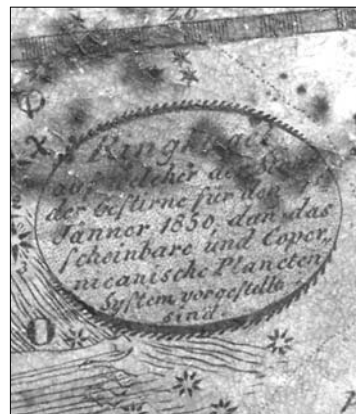 20
φ
χ
Ringkugel
auf welcher der
der Gestirne für den 1ten
Janner 1850, dan das
scheinbare und Coper„
nicanische Planeten
System vorgestellt
sind.
O